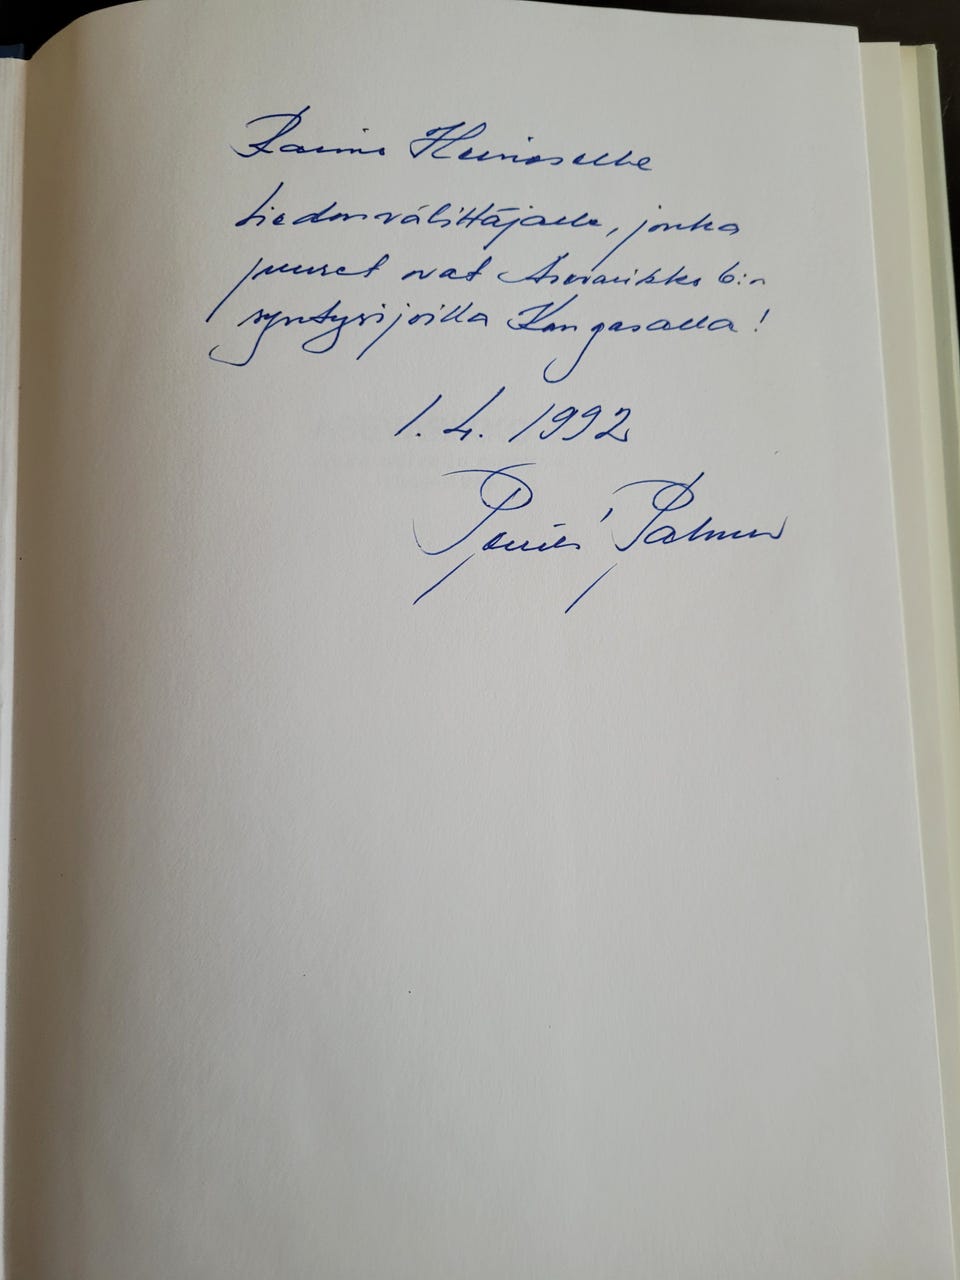 Raimo Heinoselle
tiedonvälittäjälle, jonka
juuret ovat 6:n
syntysijoilla Kangasalla!
1.4. 1992
Palmu